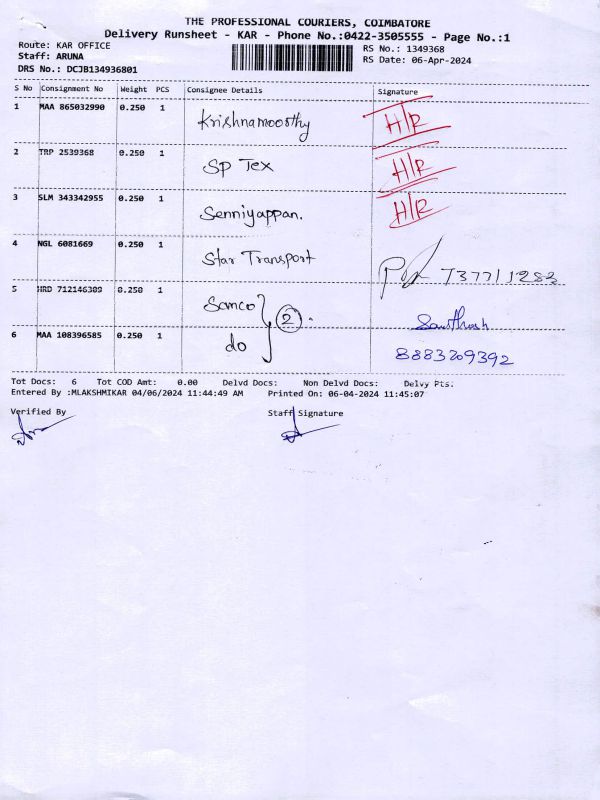 THE PROFESSIONAL COURIERS, COIMBATORE
Delivery Runsheet - KAR - Phone No.:0422-3505555 - Page No.:1
Route: KAR OFFICE RS No.: 1349368
Staff: ARUNA RS Date: 06-Apr-2024
DRS No.: DCJB134936801
S No Consignment No Weight PCS Consignee Details Signature
1 MAA 865032990 0.250 1 Krishnamoosthy H/R
2 TRP 2539368 0.250 1 Sp Tex H/R
3 SLM 343342955 0.250 1 Senniyappan. H/R
4 NGL 6081669 0.250 1 Star Transport 737711283
5 HRD 712146309 0.250 1 Samco 2. Santhosh
6 MAA 108396585 0.250 1 do 8883209392
Tot Docs: 6 Tot COD Amt: 0.00 Delvd Docs: Non Delvd Docs: Delvy Pts:
Entered By :MLAKSHMIKAR 04/06/2024 11:44:49 AM Printed On: 06-04-2024 11:45:07
Verified By Staff Signature